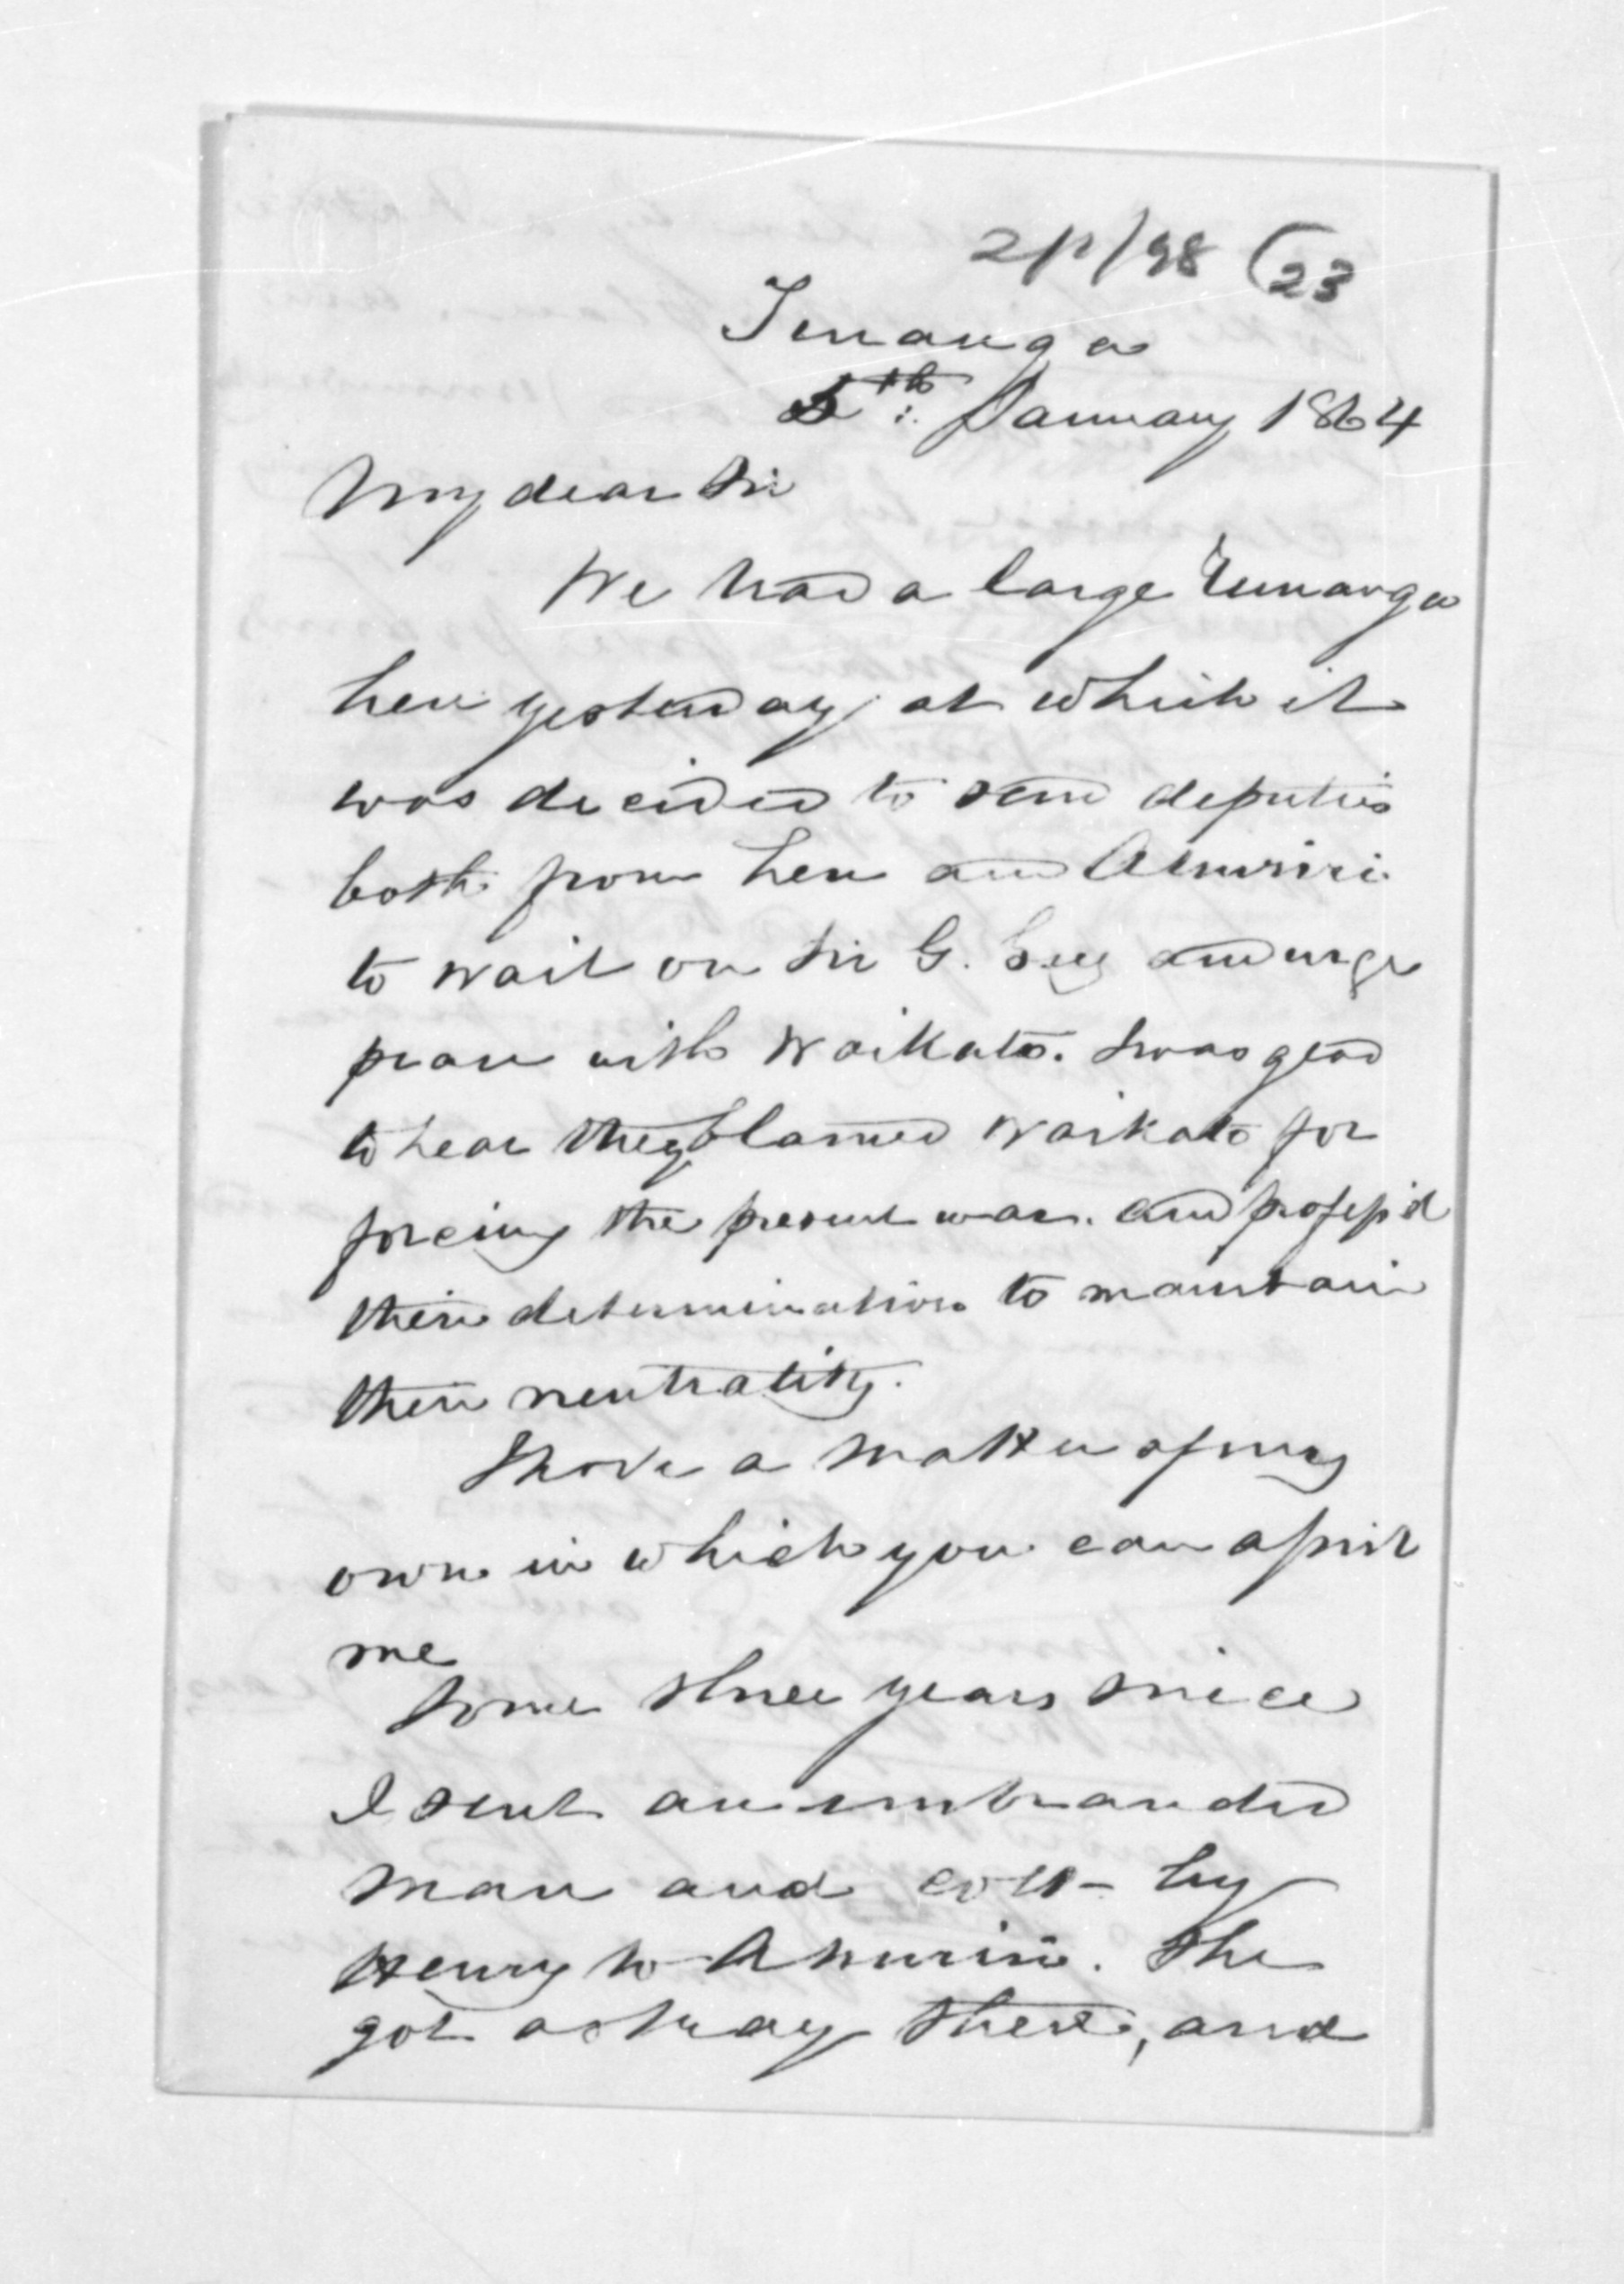 23
Turanga
5th: January 1864
My dear Sir
We had a large Runanga
here yesterday at which it
was decided to send deputies
both from here and Ahuriri
to wait on Sir G. Grey and urge
peace with Waikato. I was glad
to hear they blamed Waikato for
forcing the present war. and profess'd
their determination to maintain
their neutrality.
I have a matter of my
own in which you can assist
me
Some three years since
I sent an unbranded
mare and colt - by
Henry to Ahuriri. She
got astray there, and